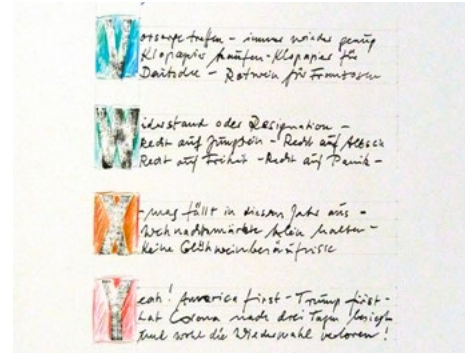 Vorsorge treffen - immer wieder genug
Klopapier kaufen - Klopapier für
Deutsche - Rotwein für Franzosen
Widerstand oder Resignation -
Recht auf Jungsein - Recht auf Abstand
Recht auf Freiheit - Recht auf Panik -
X-mas fällt in diesem Jahr aus -
Weihnachtsmärkte klein halten -
Keine Glühweinbesäufnisse
Yeah! America first - Trump first -
hat Corona nach drei Tagen besiegt
und wohl die Wiederwahl verloren!